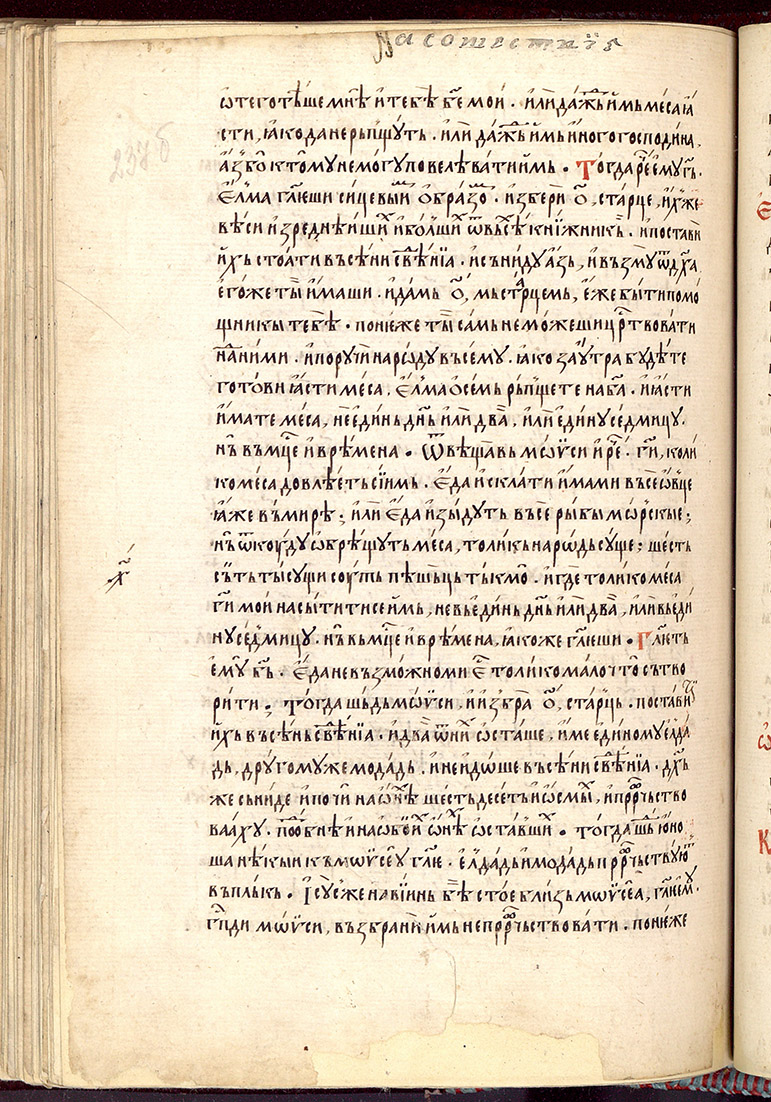 На сошествиѥ
237 б
ѡтеготѣше мнѣ и тебѣ бж҃е мои · или да́ждь и҆мь меса ꙗ
сти, ꙗко да не ръпщуть · или да́ждь и҆мь и҆ного господина,
а҆зь бо к томꙋ не могу повелѣвати и҆мь · Тогда рече ѐмꙋ гь҃ ·
Ѐлма глѥ҃ши сицевыи ѻбразо(м) · избери ѻ҃, старце, и҆хже
вѣси изреднѣиши(х) и болши(х) ѿ въсѣ(х) кнїжникь · и постави
и҆хь стоати въ сѣни свѣ҃нїа · и сънидꙋ азь, и възмꙋ ѿ дх҃а
ѐгоже ты и҆маши · и дамь ѻ҃, мь старцемь, ѐже быти помо
щникы тебѣ · понѥже ты самь не може́ши цр҃твовати
над ними · и порꙋчи народꙋ въсемꙋ · ꙗко заꙋтра бꙋдѣте
готови ꙗсти меса, Ѐлма о семь ръпщете на ба҃ · и ꙗсти
и҆мате меса, не ѐдинь дн҃ь и҆ли два, и҆ли ѐдинꙋ седмицꙋ ·
нь въ мц҃е и врѣмена · Ѿвѣщавь мѡѵси и рече · ги҃, коли
ко меса довлѣѥть сїимь · Ѐда исклати и҆мами въсе ѡвце
ꙗже въ мирѣ ; или ѐда изыдꙋть въсе рыбы мѡрскыѥ ;
нь ѿкоꙋдꙋ ѡбрѣщꙋть меса, толикь народь сꙋще ; шесть
сѣть тысꙋщи соуть пѣшьць тъкмо · и где толико меса
х҃
ги҃ мои насытити се и҆мь, не въ ѐдинь дн҃ь и҆ли два, и҆ли въ ѐди
нꙋ седмицꙋ · нь въ мц҃е и врѣмена, ꙗкоже глѥ҃ши · Глѥ҃ть
ѐмꙋ бь҃ · Ѐда не възможно ми ѥ(с) толико мало что сътво
рити ; Тогда шьдь мѡѵси, и избра ѻ҃, старць · постави
и҆хь въ сѣнь свѣ҃нїа · и два ѿ ни(х) ѡсташе, и҆ме ѐдиномꙋ ѐлда
дь, дрꙋгомꙋ же модадь · и не идѡше въ сѣни свѣ҃нїа · дх҃ь
же сьниде и почи на ѡнѣ(х) шестьдесеть и ѡсмы(х), и пррчьство
ваахꙋ · подобнѣ и на ѡбои(х) ѡнѣ(х) ѡставши(х) · Тогда шь(д) юно
ша нѣкыи къ мѡѵсеꙋ глѥ҃ · ѐлдадь и модадь пррчьствꙋю(т)
въ плъкь · Їсꙋс же навїинь бѣ стоѐ близь мѡѵсеа, глѥ҃ ѐмꙋ ·
гп҃ди мѡѵси, възбрани и҆мь не пррчьствовати · понѥже